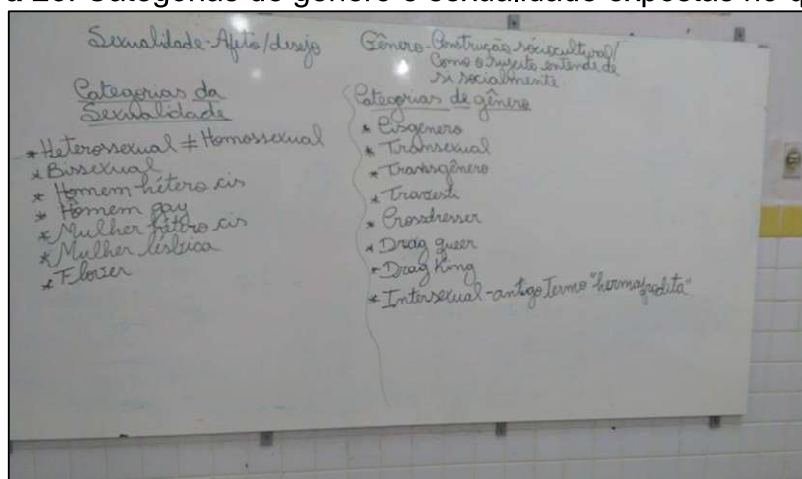 Sexualidade - Afeto/desejo
Categorias da
Sexualidade
* Heterossexual ≠ Homossexual
* Bissexual
* Homem hétero cis
* Homem gay
* Mulher hétero cis
* Mulher lésbica
Gênero - Construção sóciocultural/
Como o sujeito entende de
si socialmente
Categorias de gênero
* Cisgênero
* Transexual
* Transgênero
* Travesti
* Crossdresser
* Drag queen
* Drag King
* Intersexual - antigo Termo "hermafrodita"